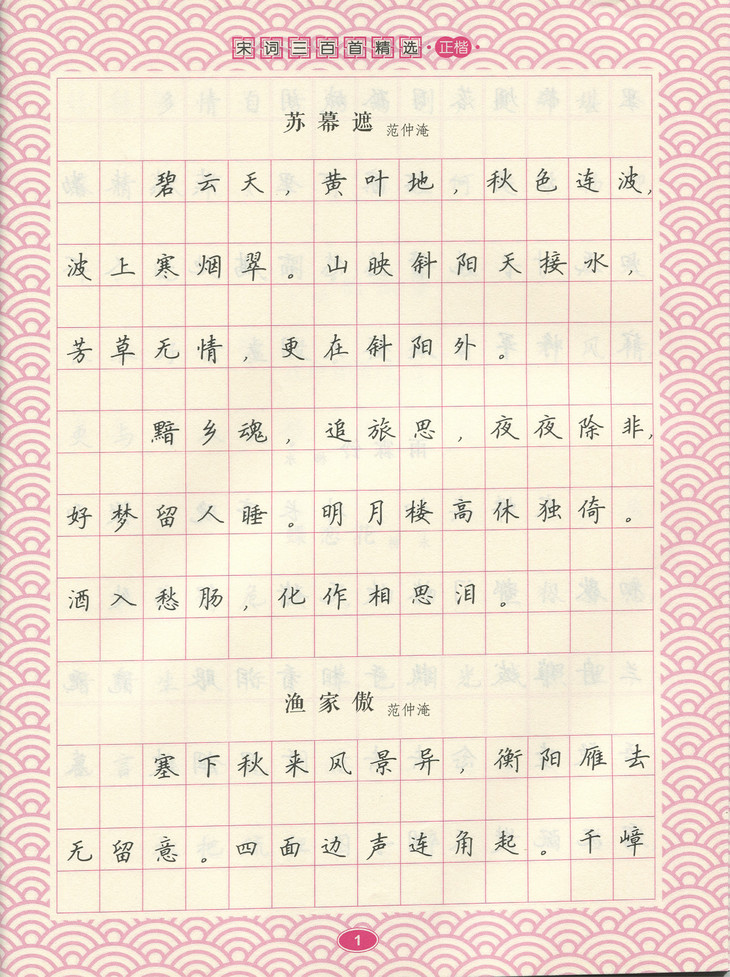 宋词三百首精选·正楷·
苏幕遮 范仲淹
碧云天，黄叶地，秋色连波，
波上寒烟翠。山映斜阳天接水，
芳草无情，更在斜阳外。
黯乡魂，追旅思，夜夜除非，
好梦留人睡。明月楼高休独倚。
酒入愁肠，化作相思泪。
渔家傲 范仲淹
塞下秋来风景异，衡阳雁去
无留意。四面边声连角起。千嶂
1